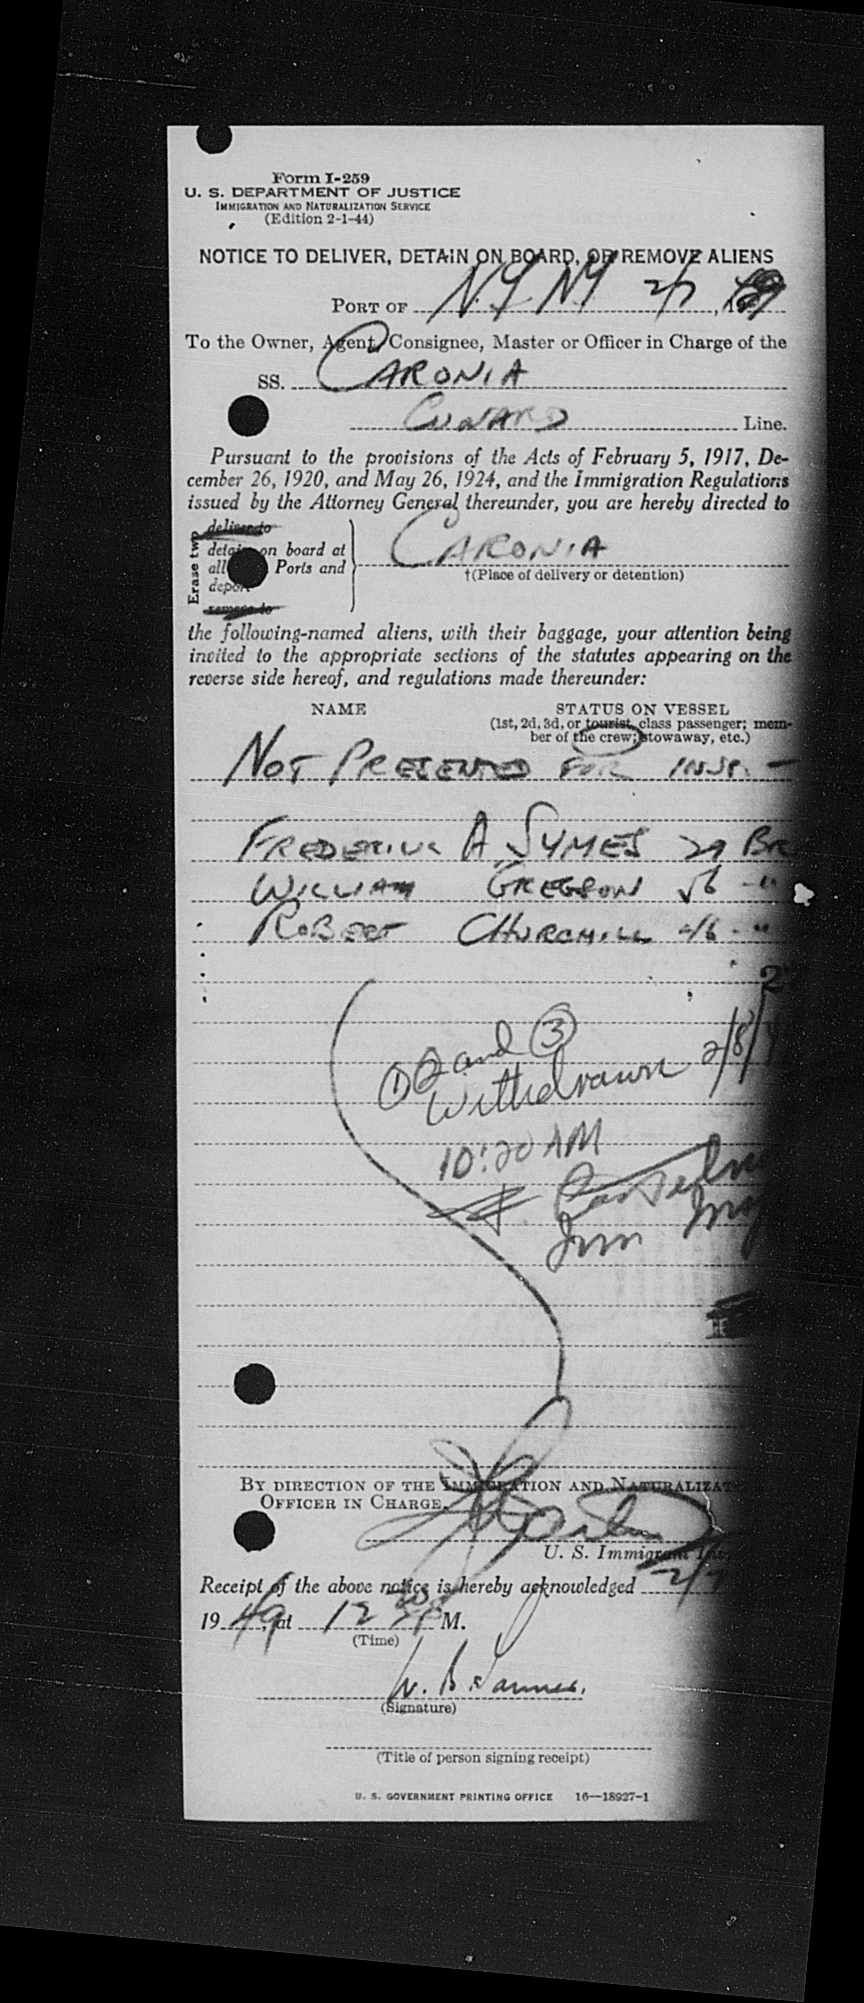 Form I-259
U. S. DEPARTMENT OF JUSTICE
IMMIGRATION AND NATURALIZATION SERVICE
(Edition 2-1-44)
NOTICE TO DELIVER, DETAIN ON BOARD, OR REMOVE ALIENS
PORT OF NY NY 2/7, 1949
To the Owner, Agent, Consignee, Master or Officer in Charge of the
SS. CARONIA
CUNARD Line.
Pursuant to the provisions of the Acts of February 5, 1917, De-
cember 26, 1920, and May 26, 1924, and the Immigration Regulations
issued by the Attorney General thereunder, you are hereby directed to
Erase two
deliver to
detain on board at
all Ports and
deport
remove to
CARONIA
†(Place of delivery or detention)
the following-named aliens, with their baggage, your attention being
invited to the appropriate sections of the statutes appearing on the
reverse side hereof, and regulations made thereunder:
NAME STATUS ON VESSEL
(1st, 2d, 3d, or tourist class passenger; mem-
ber of the crew; stowaway, etc.)
NOT PRESENTED FOR INSP. -
FREDERICK A. SYMES 29 BR
WILLIAM GREGSON 56 - "
ROBERT CHURCHILL 46 - "
① ② and ③
Withdrawn 2/8/
10:20 AM
Imm
BY DIRECTION OF THE IMMIGRATION AND NATURALIZAT
OFFICER IN CHARGE.
U. S. Immigrant
Receipt of the above notice is hereby acknowledged 2/7
19 49, at 12 M.
(Time)
W. B.
(Signature)
(Title of person signing receipt)
U. S. GOVERNMENT PRINTING OFFICE 16—18927-1